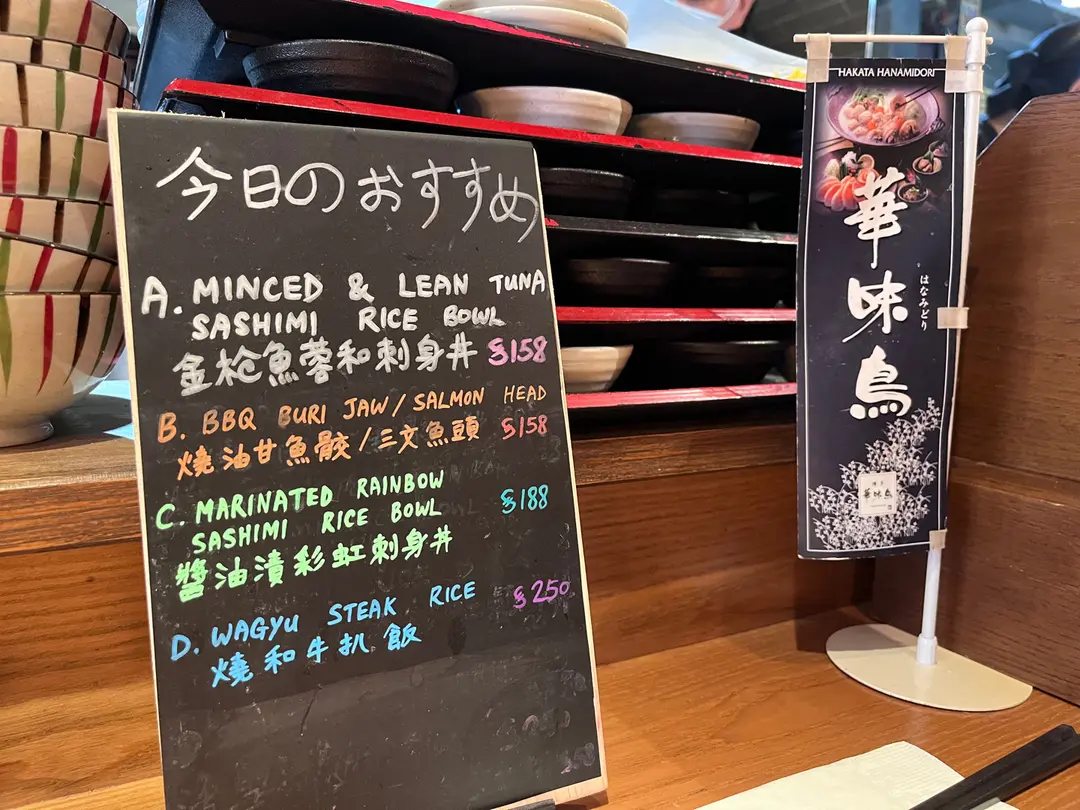 今日のおすすめ
A. MINCED & LEAN TUNA
SASHIMI RICE BOWL
金枪魚蓉和刺身丼 $158
B. BBQ BURI JAW / SALMON HEAD
燒油甘魚骹/三文魚頭 $158
C. MARINATED RAINBOW
SASHIMI RICE BOWL $188
醬油漬彩虹刺身丼
D. WAGYU STEAK RICE $250
燒和牛扒飯
HAKATA HANAMIDORI
華味鳥
はなみどり
華味鳥